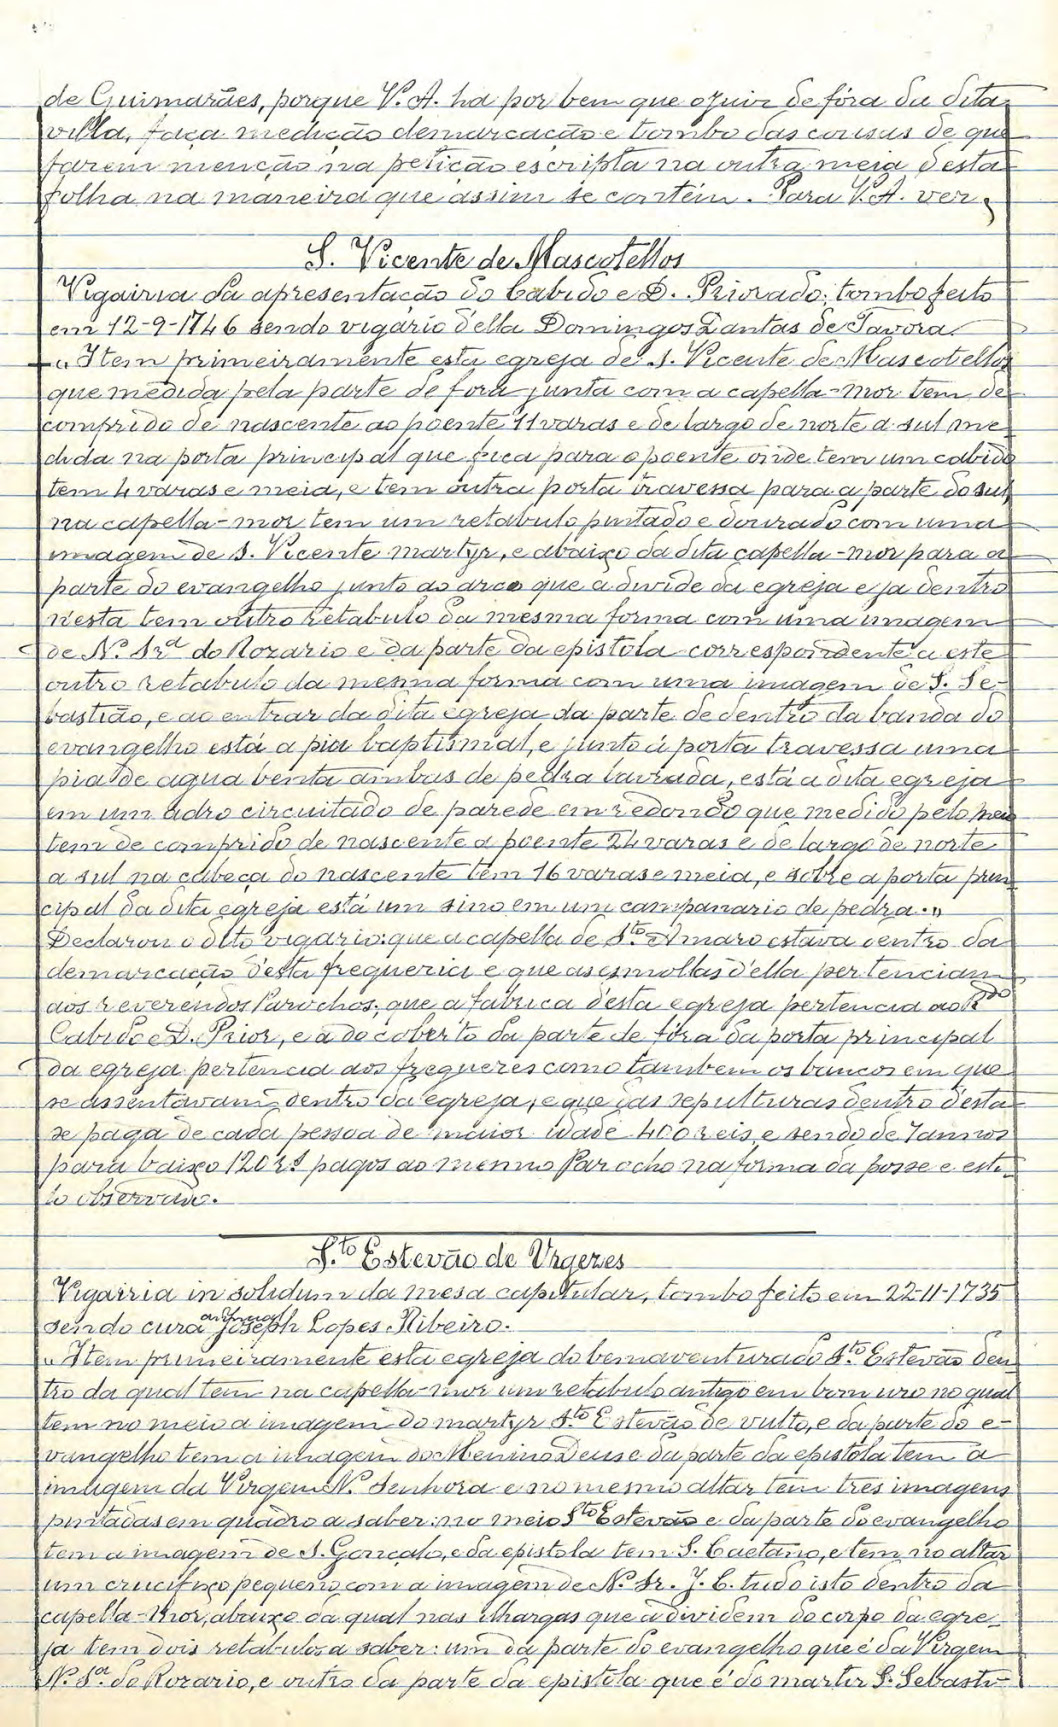 de Guimarães, porque V. A. ha por bem que o Juiz de fóra da dita
villa, faça medição demarcação e tombo das cousas de que
fazem menção na petição escripta na outra meia d'esta
folha na maneira que assim se contém. Para V. A. ver,
S. Vicente de Mascotellos
Vigairia da apresentação do Cabido e D. Priorado; tombo feito
em 12-9-1746 sendo vigário d'ella Domingos Dantas de Tavora.
"Item primeiramente esta egreja de S. Vicente de Mascotellos
que medida pela parte de fora junta com a capella-mor tem de
comprido de nascente ao poente 11 varas e de largo de norte a sul me-
dida na porta principal que fica para o poente onde tem um cabido
tem 4 varas e meia, e tem outra porta travessa para a parte do sul,
na capella-mor tem um retabulo pintado e dourado com uma
imagem de S. Vicente martyr, e abaixo da dita capella-mor para a
parte do evangelho junto ao arco que a divide da egreja e ja dentro
n'esta tem outro retabulo da mesma forma com uma imagem
de N. Sra do Rozario e da parte da epistola correspondente a este
outro retabulo da mesma forma com uma imagem de S. Se-
bastião, e ao entrar da dita egreja da parte de dentro da banda do
evangelho está a pia baptismal, e junto á porta travessa uma
pia de agua benta ambas de pedra lavrada, está a dita egreja
em um adro circuitado de parede em redondo que medido pelo meio
tem de comprido de nascente a poente 24 varas e de largo de norte
a sul na cabeça do nascente tem 16 varas e meia, e sobre a porta prin-
cipal da dita egreja está um sino em um campanario de pedra."
Declarou o dito vigario: que a capella de Sto Amaro estava dentro da
demarcação d'esta freguezia e que as esmollas d'ella pertenciam
aos reverendos Parochos; que a fabrica d'esta egreja pertencia ao Rdo
Cabido e D. Prior, e a do coberto da parte de fóra da porta principal
da egreja pertencia aos freguezes como tambem os bancos em que
se assentavam dentro da egreja; e que das sepulturas dentro d'esta
se paga de cada pessoa de maior idade 400 reis, e sendo de 7 annos
para baixo 120 rs pagos ao mesmo Parocho na forma da posse e esti-
lo observado.
S.to Estevão de Urgezes
Vigairia in solidum da mesa capitular, tombo feito em 22-11-1735
sendo cura Joseph Lopes Ribeiro.
"Item primeiramente esta egreja do bemaventurado S.to Estevão den-
tro da qual tem na capella-mor um retabulo antigo em bom uzo no qual
tem no meio a imagem do martyr S.to Estevão de vulto, e da parte do e-
vangelho tem a imagem do Menino Deus e da parte da epistola tem a
imagem da Virgem N. Senhora e no mesmo altar tem tres imagens
pintadas em quadro a saber: no meio S.to Estevão e da parte do evangelho
tem a imagem de S. Gonçalo, e da epistola tem S. Caetano, e tem no altar
um crucifixo pequeno com a imagem de N. Sr. J. C. tudo isto dentro da
capella-mor, abaixo da qual nas ilhargas que a dividem do corpo da egre-
ja tem dois retabulos a saber: um da parte do evangelho que é da Virgem
N. Sra do Rozario, e outro da parte da epistola que é do martir S. Sebasti-